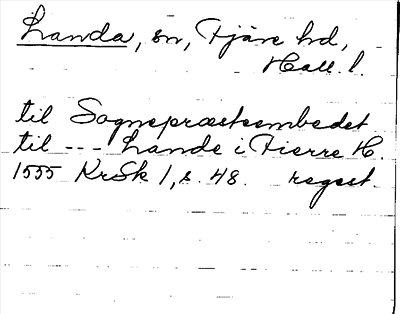 Landa, sn, Fjäre hd,
Hall. l.
til Sognepræsteembedet
til --- Lande i Fierre H.
1555 KrSk 1, s. 48. regest